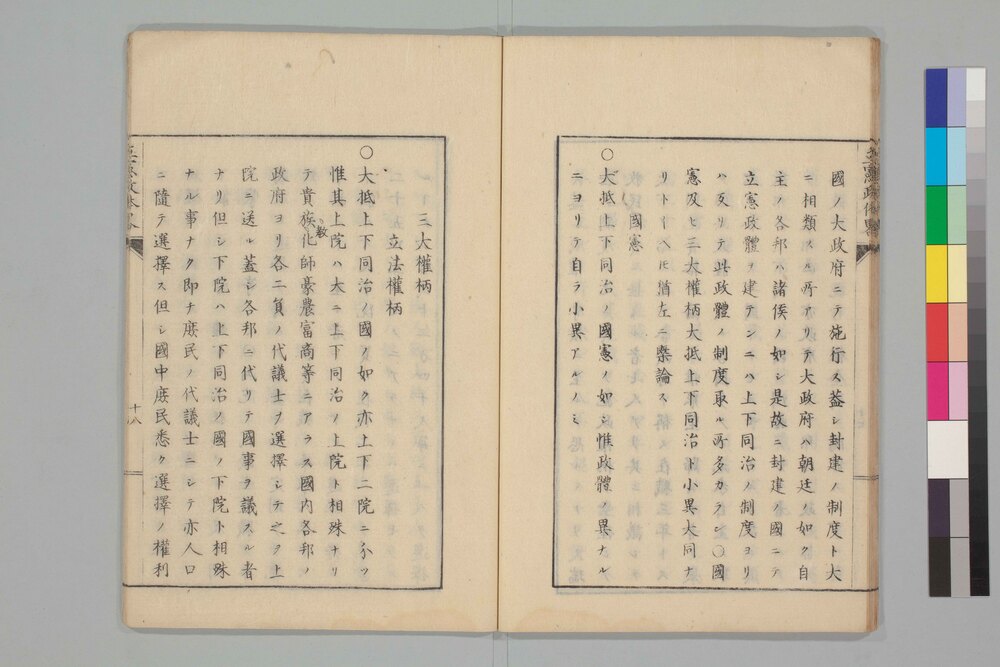 國ノ大政府ニテ施行ス蓋シ封建ノ制度ト大
ニ相類スル所アリテ大政府ハ朝廷ノ如ク自
主ノ各邦ハ諸侯ノ如シ是故ニ封建ノ國ニテ
立憲政體ヲ建テンニハ上下同治ノ制度ヨリ
ハ反リテ此政體ノ制度取ル所多カラン〇國
憲及ヒ三大權柄大抵上下同治ト小異大同ナ
リトイヘトモ猶左ニ槩論ス
國憲
〇大抵上下同治ノ國憲ノ如シ惟政體ノ異ナル
ニヨリテ自ラ小異アルノミ
三大權柄
立法權柄
〇大抵上下同治ノ國ノ如ク亦上下二院ニ分ツ
惟其上院ハ大ニ上下同治ノ上院ト相殊ナリ
テ貴族教化師豪農富商等ニアラス國内各邦ノ
政府ヨリ各二員ノ代議士ヲ選擇シテ之ヲ上
院ニ送ル蓋シ各邦ニ代リテ國事ヲ議スル者
ナリ但シ下院ハ上下同治ノ國ノ下院ト相殊
ナル事ナク即チ庶民ノ代議士ニシテ亦人口
ニ隨テ選擇ス但シ國中庶民悉ク選擇ノ權利
十八